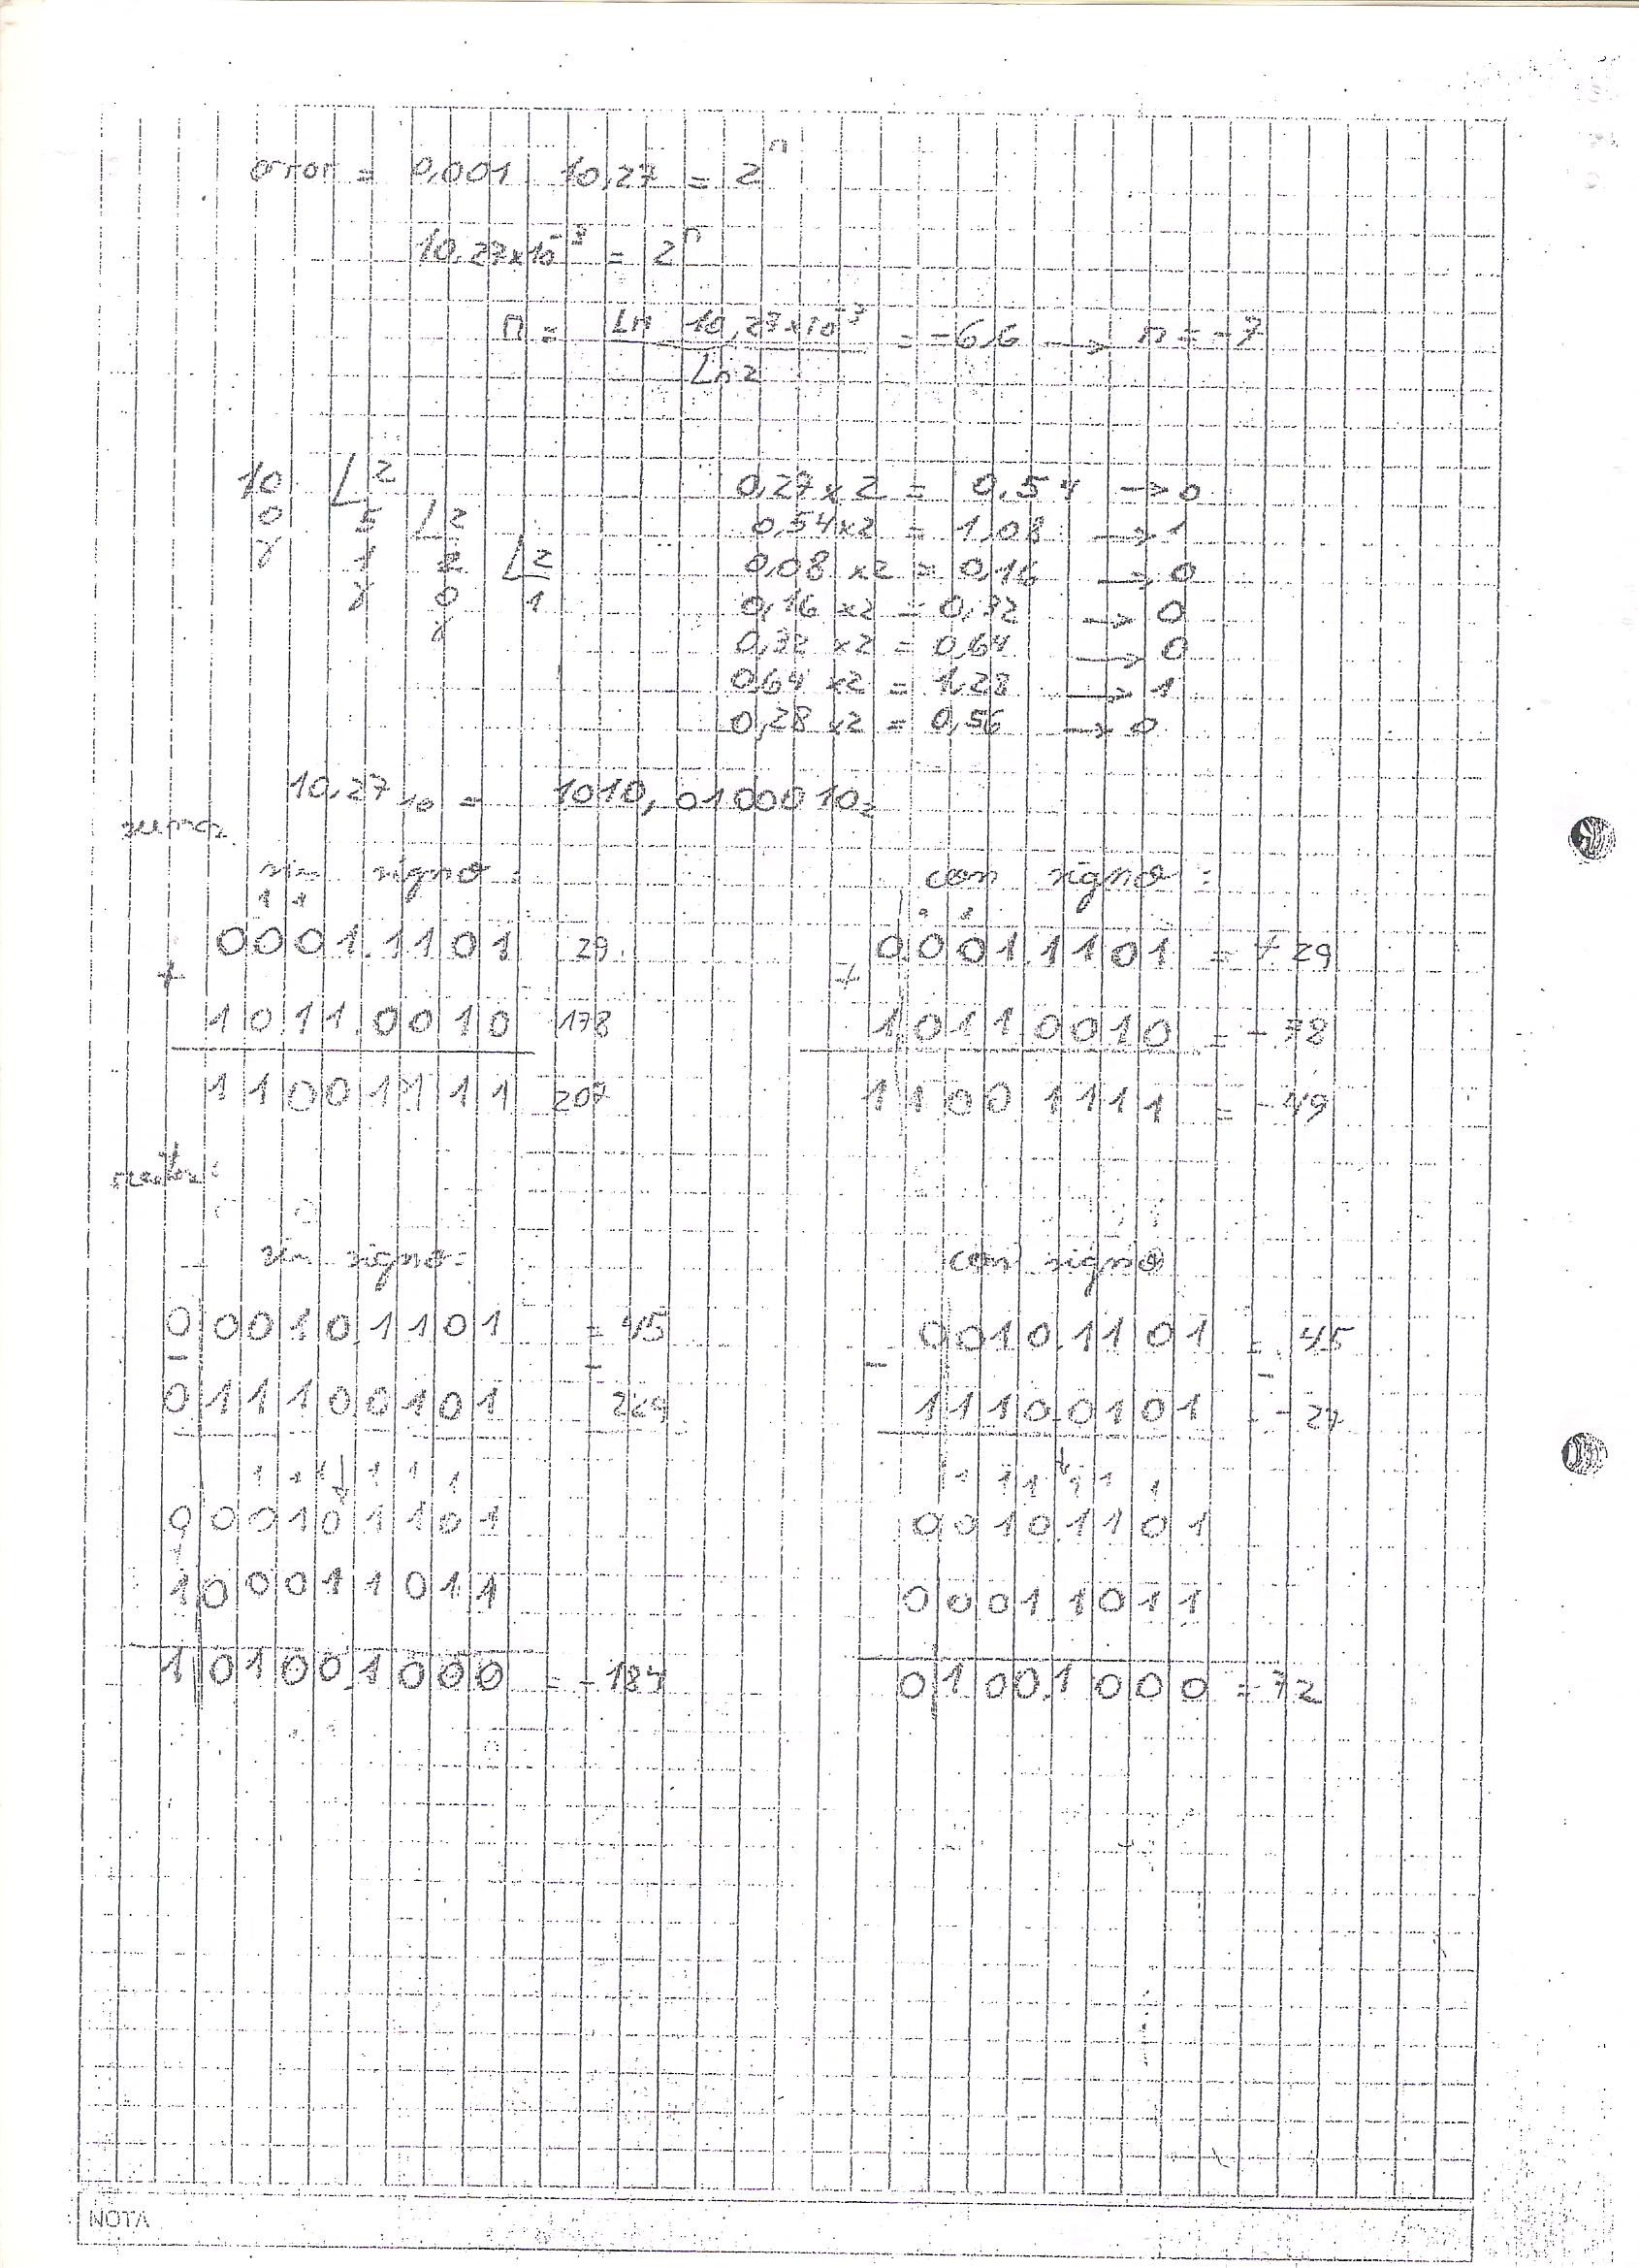 error = 0,001 10,27 = 2^n
10,27x10^-3 = 2^n
n = Ln 10,27x10^-3 / Ln 2 = -6,6 → n = -7
10 2
0 5 2
1 2 2
0 1
0,27 x 2 = 0,54 → 0
0,54 x2 = 1,08 → 1
0,08 x2 = 0,16 → 0
0,16 x2 = 0,32 → 0
0,32 x2 = 0,64 → 0
0,64 x2 = 1,28 → 1
0,28 x2 = 0,56 → 0
10,27₁₀ = 1010,0100010₂
suma
sin signo:
1 1
0001.1101 29
+
1011.0010 178
11001111 207
con signo:
0001.1101 = +29
+
10110010 = -78
11001111 = -49
resta:
sin signo:
00010.1101 = 45
- -
011100101 229
1 1 1 1 1 1 1
000101101
100011011
101001000 = -184
con signo
0010.1101 = 45
- -
1110.0101 = -27
1 1 1 1 1 1
00101101
00011011
01001000 = 72
NOTA